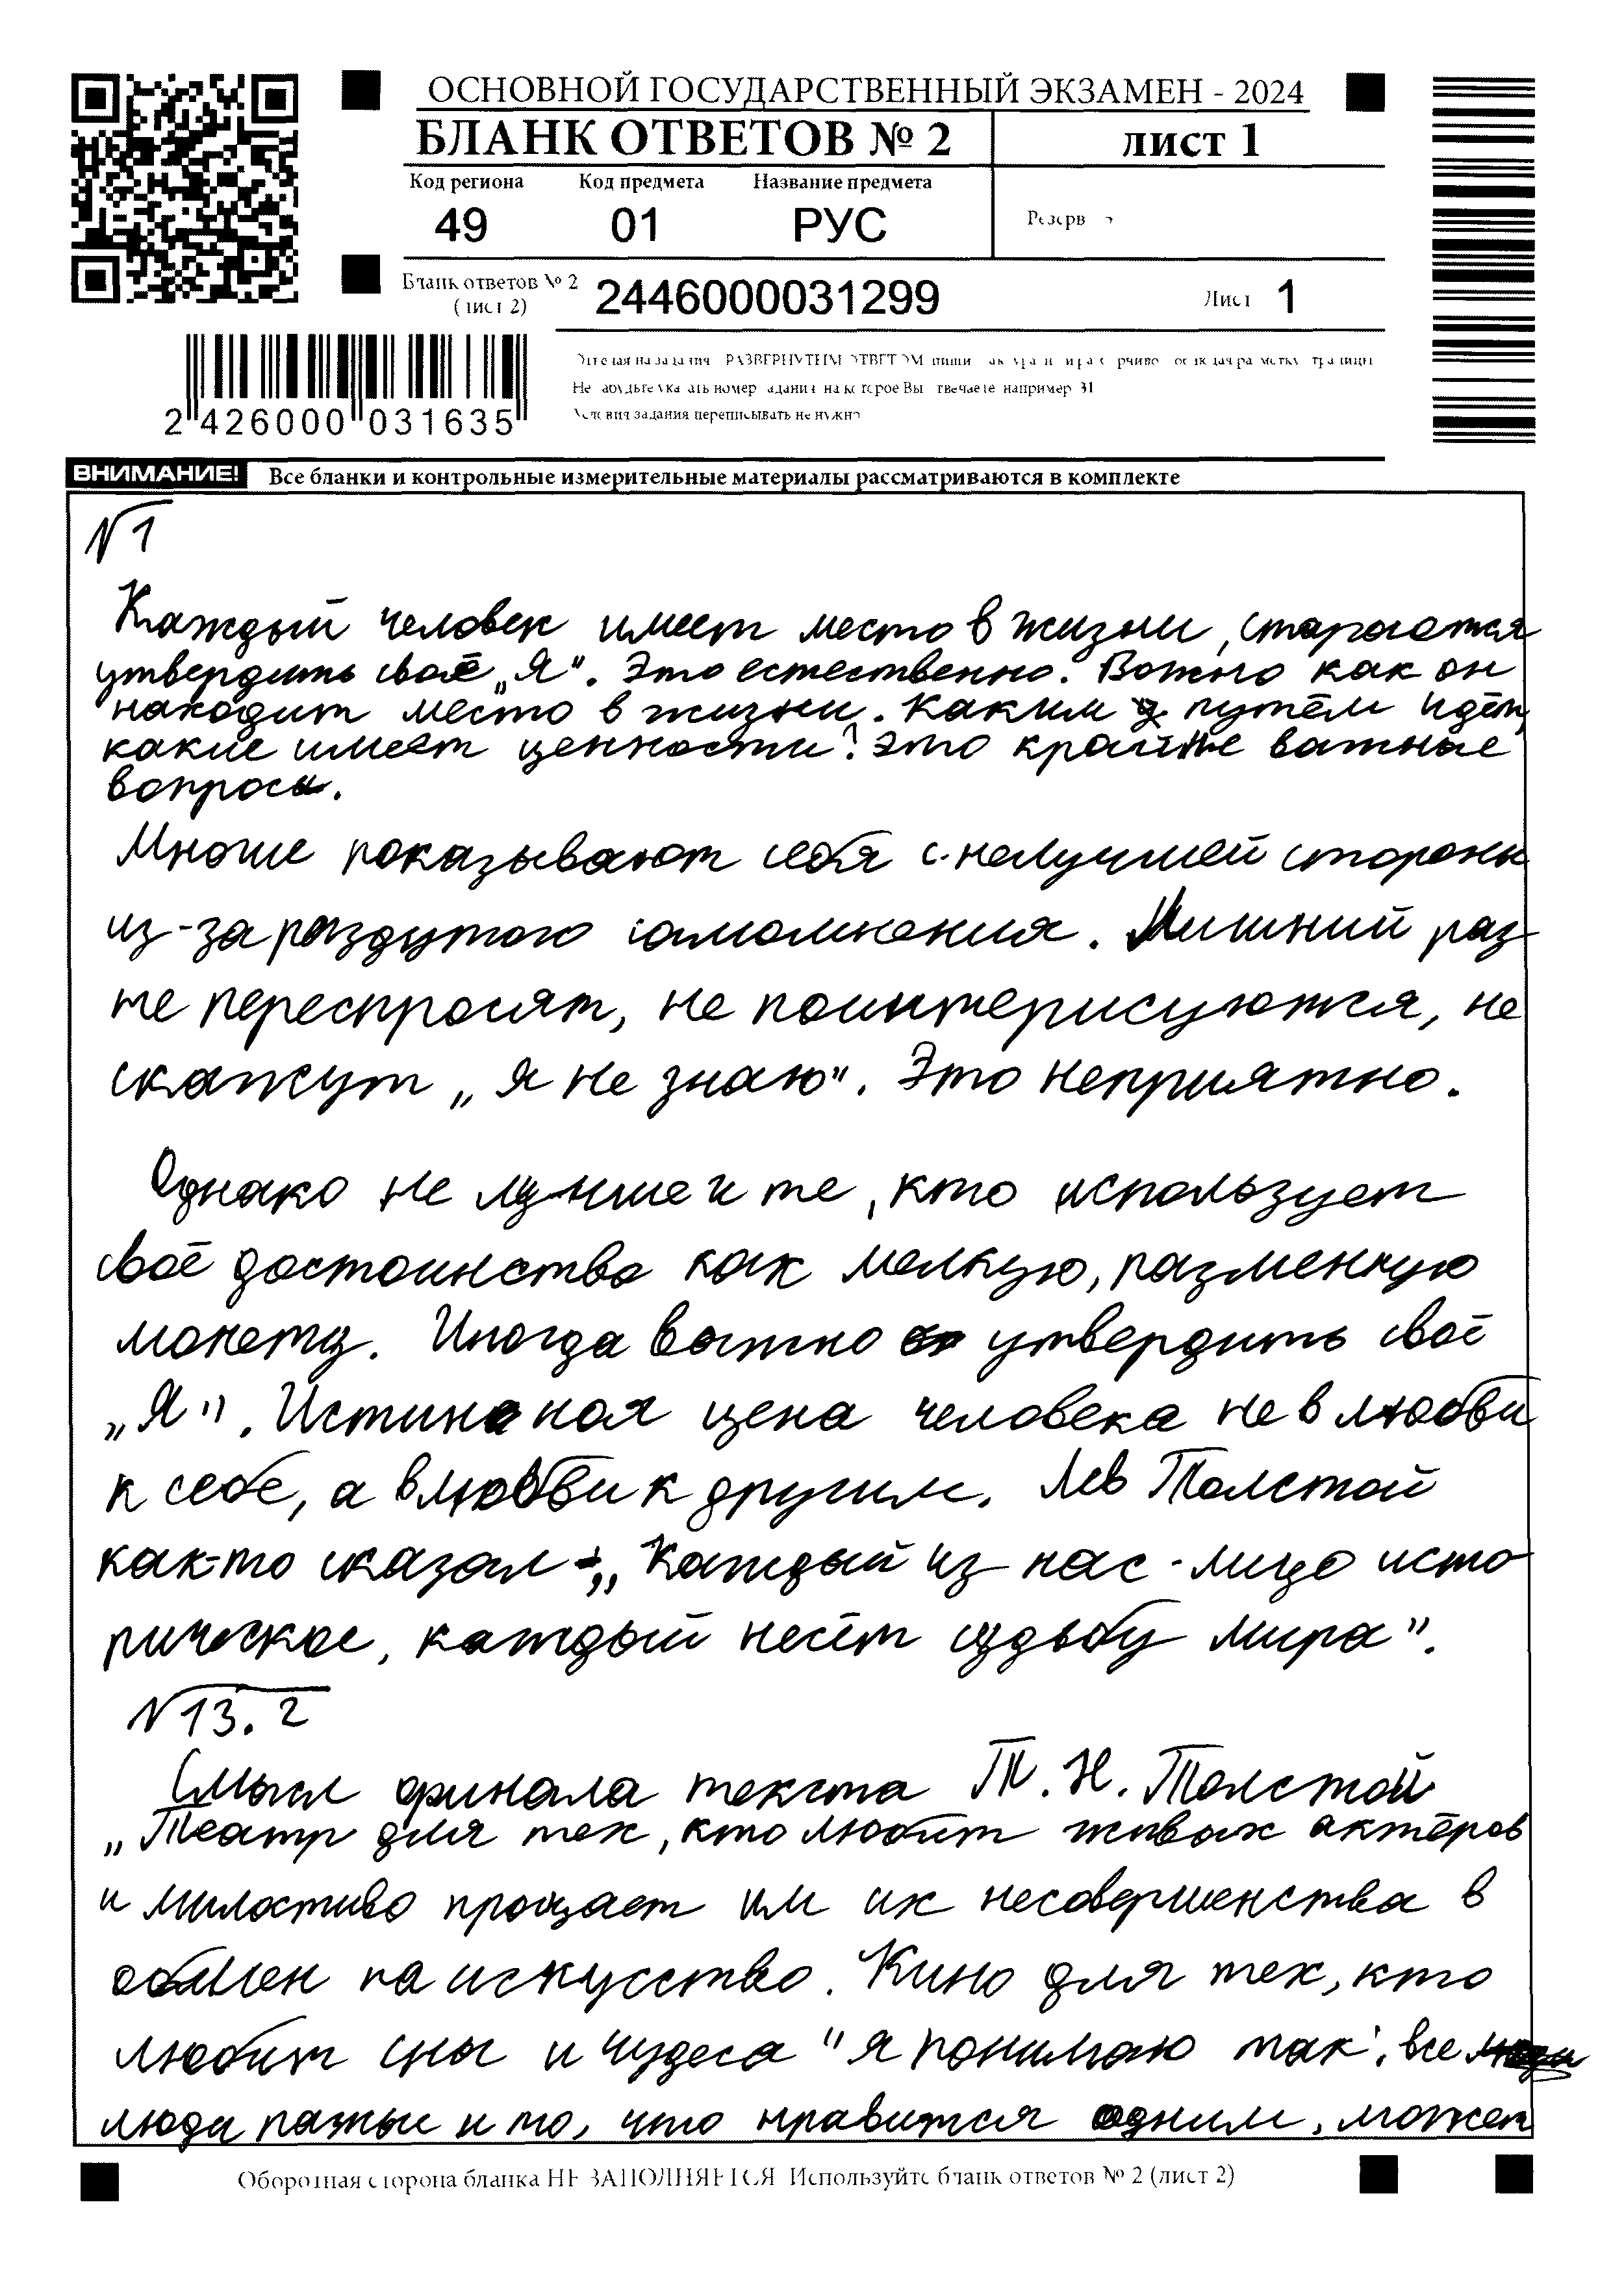 ОСНОВНОЙ ГОСУДАРСТВЕННЫЙ ЭКЗАМЕН - 2024
БЛАНК ОТВЕТОВ № 2
лист 1
Код региона Код предмета Название предмета
49 01 РУС
Резерв
Бланк ответов № 2
(лист 2)
2446000031299
Лист 1
2 426000 031635
Не номер задания на которое Вы отвечаете например 31
Условия задания переписывать не нужно
ВНИМАНИЕ! Все бланки и контрольные измерительные материалы рассматриваются в комплекте
№1
Каждый человек имеет место в жизни, старается
утвердить своё „Я“. Это естественно. Важно как он
находит место в жизни. Каким путём идёт,
какие имеет ценности? Это крайне важные
вопросы.
Многие показывают себя с нелучшей стороны
из-за раздутого самомнения. Лишний раз
не переспросят, не поинтерисуются, не
скажут „я не знаю“. Это неприятно.
Однако не лучше и те, кто использует
своё достоинство как мелкую, разменную
монету. Иногда важно утвердить своё
„Я“. Истинная цена человека не в любви
к себе, а в любви к другим. Лев Толстой
как-то сказал: „Каждый из нас - лицо исто
рическое, каждый несёт судьбу мира“.
№13.2
Смысл финала текста Т. Н. Толстой
„Театр для тех, кто любит живых актёров
и милостиво прощает им их несовершенства в
обмен на искусство. Кино для тех, кто
любит сны и чудеса“ я понимаю так: все
люди разные и то, что нравится одним, может
Оборотная сторона бланка НЕ ЗАПОЛНЯЕТСЯ Используйте бланк ответов № 2 (лист 2)